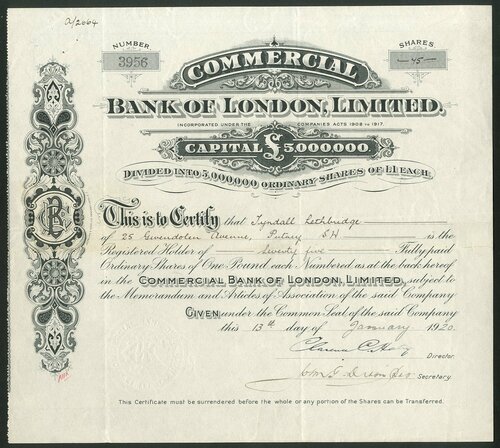 a/2064
NUMBER
3956
SHARES
COMMERCIAL
BANK OF LONDON, LIMITED.
INCORPORATED UNDER THE COMPANIES ACTS 1908 TO 1917.
CAPITAL £5,000,000
DIVIDED INTO 5,000,000 ORDINARY SHARES OF £1 EACH.
This is to Certify that Tyndall Lethbridge
of 25 Gwendolen Avenue, Putney is the
Registered Holder of Seventy five Fully paid
Ordinary Shares of One Pound each Numbered as at the back hereof
in the COMMERCIAL BANK OF LONDON, LIMITED, subject to
the Memorandum and Articles of Association of the said Company
GIVEN under the Common Seal of the said Company
this 13th day of January 1920.
Director.
Secretary.
This Certificate must be surrendered before the whole or any portion of the Shares can be Transferred.